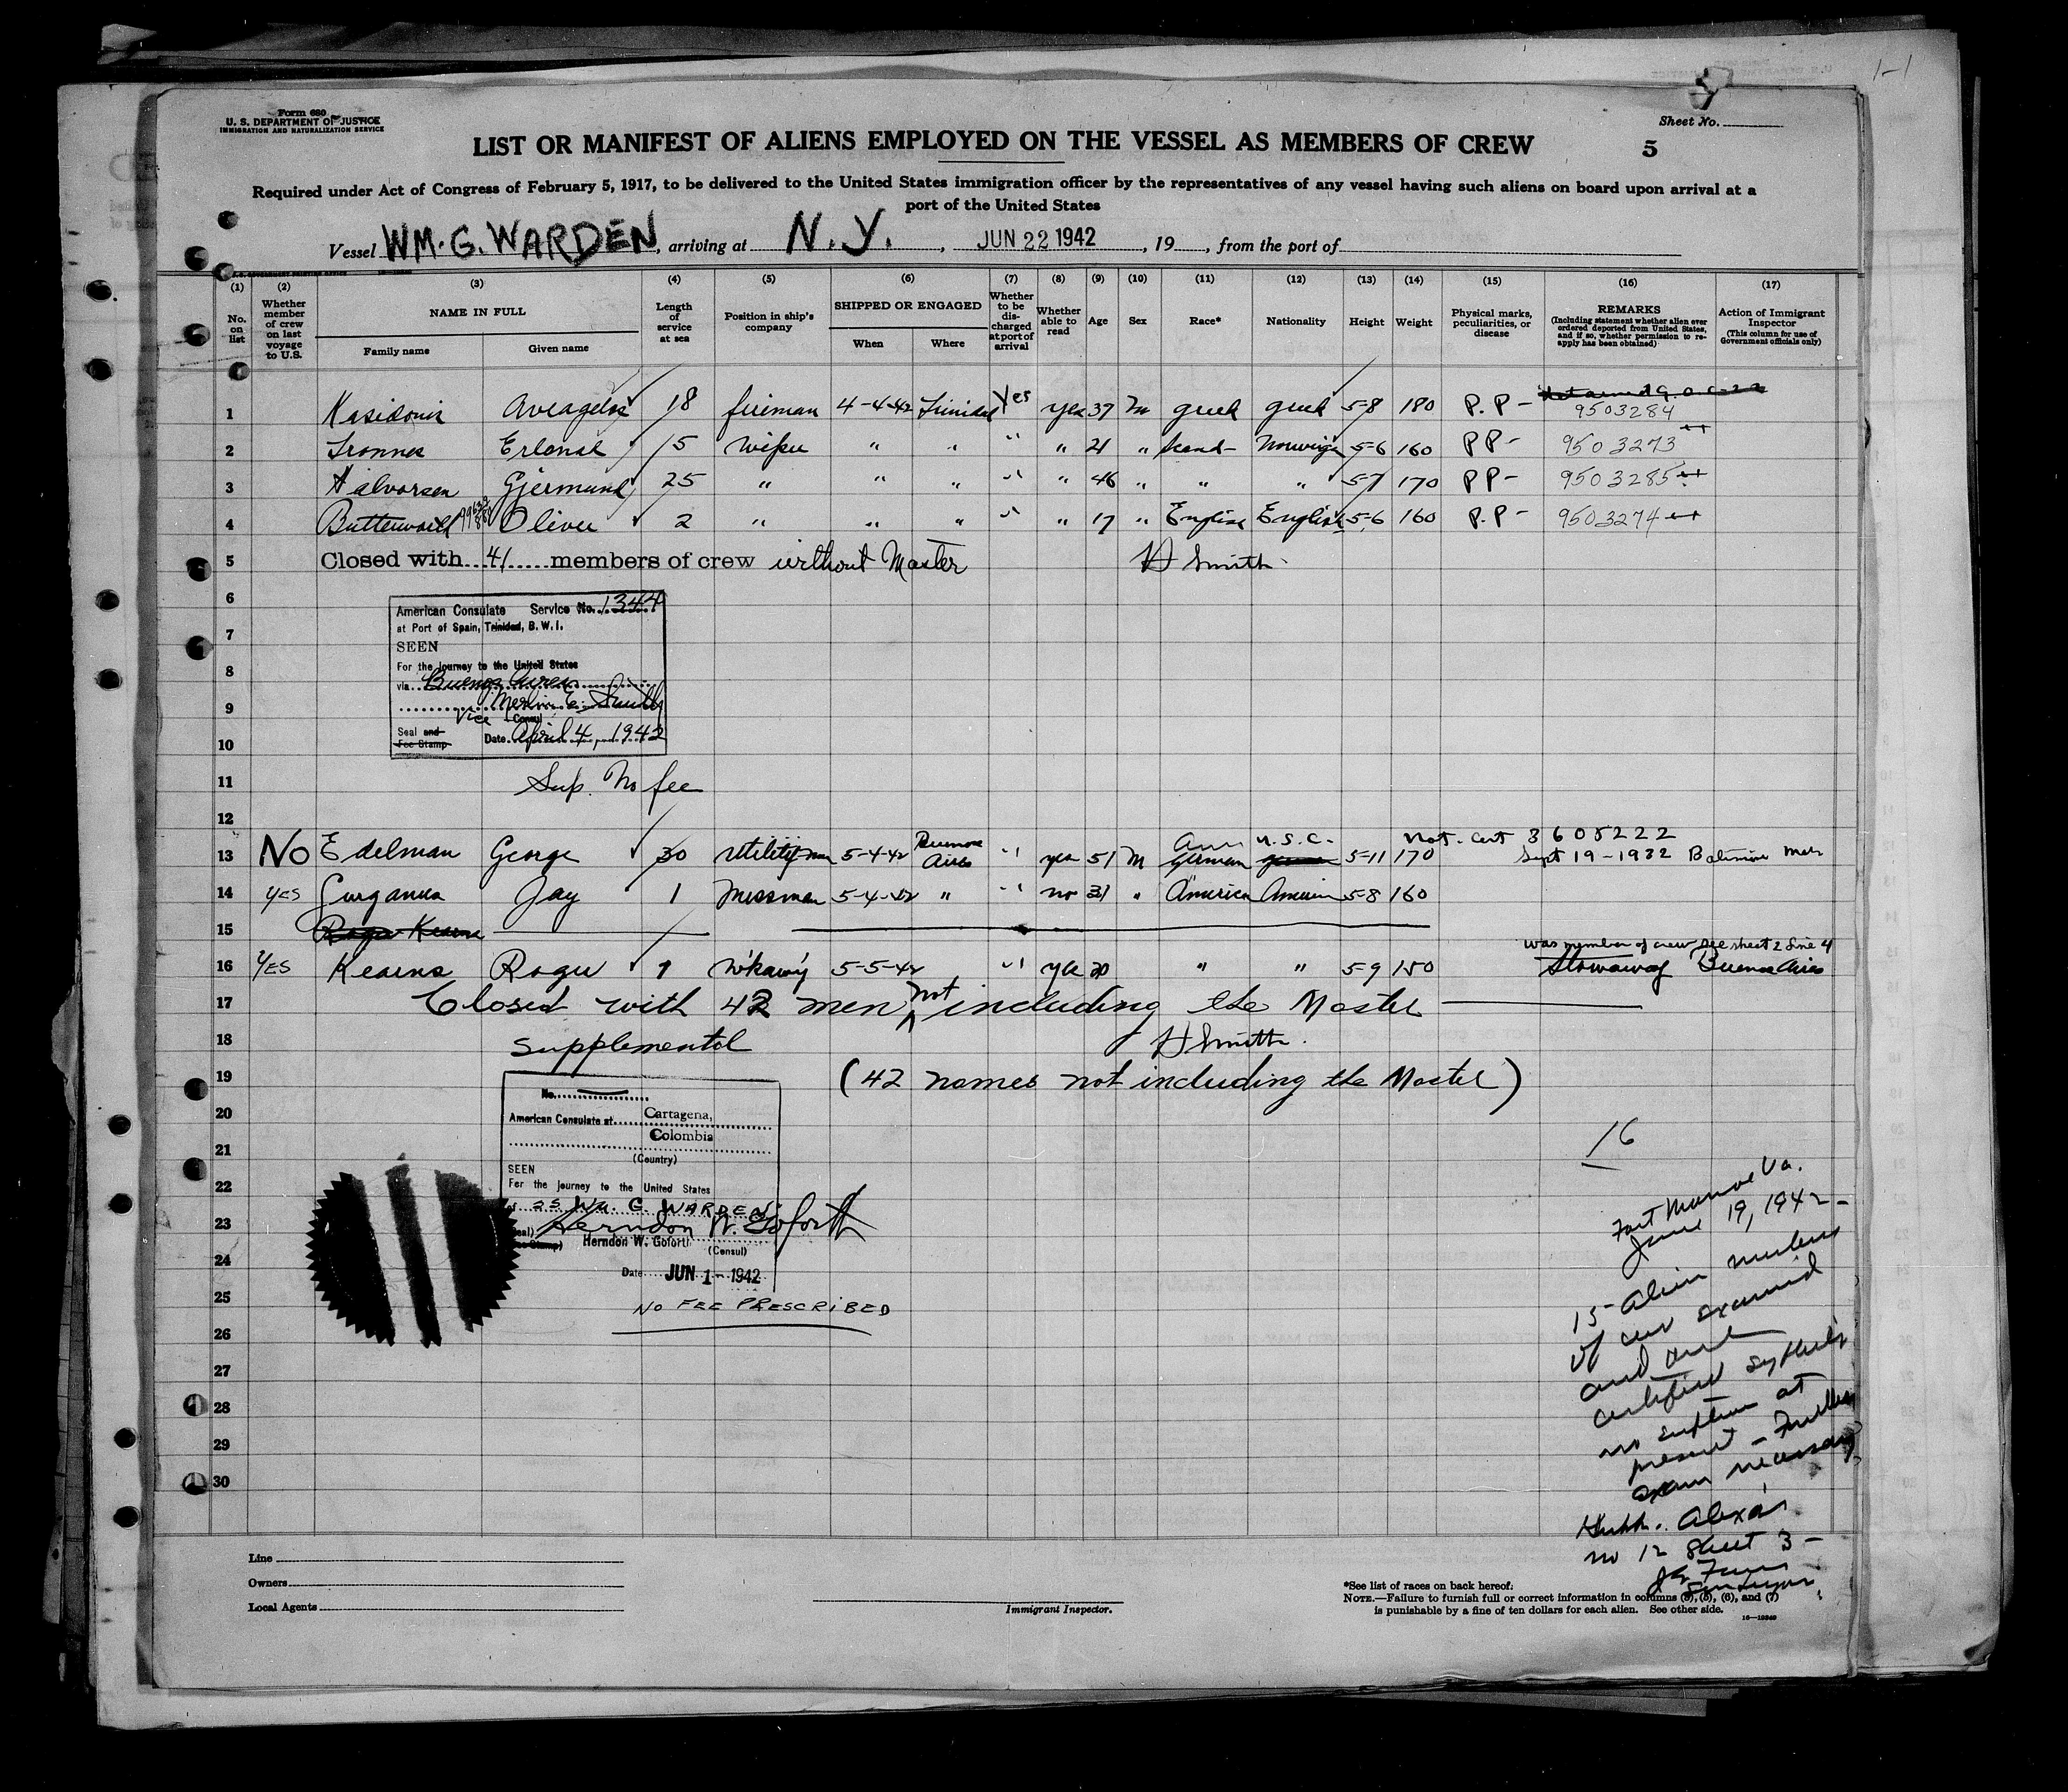 1-1
Form 680
U. S. DEPARTMENT OF JUSTICE
IMMIGRATION AND NATURALIZATION SERVICE
Sheet No.
5
LIST OR MANIFEST OF ALIENS EMPLOYED ON THE VESSEL AS MEMBERS OF CREW
Required under Act of Congress of February 5, 1917, to be delivered to the United States immigration officer by the representatives of any vessel having such aliens on board upon arrival at a
port of the United States
Vessel WM. G. WARDEN, arriving at N. Y., JUN 22 1942, 19, from the port of
(1) (2) (3) (4) (5) (6) (7) (8) (9) (10) (11) (12) (13) (14) (15) (16) (17)
No. on list
Whether member of crew on last voyage to U.S.
NAME IN FULL
Family name
Given name
Length of service at sea
Position in ship's company
SHIPPED OR ENGAGED
When
Where
Whether to be discharged at port of arrival
Whether able to read
Age
Sex
Race*
Nationality
Height
Weight
Physical marks, peculiarities, or disease
REMARKS
(Including statement whether alien ever ordered deported from United States, and if so, whether permission to reapply has been obtained)
Action of Immigrant Inspector
(This column for use of Government officials only)
1 18 fireman 4-4-42 Trinidad Yes yes 37 M greek greek 5-8 180 P.P - 9503284
2 Erland 15 Wiper " " " " 21 " Scand- 5-6 160 PP - 9503273
3 Halvorsen Gjermund 25 " " " " " 46 " " " 5-7 170 PP - 9503285
4 Oliver 2 " " " " " 17 " English English 5-6 160 P.P - 9503274
5 Closed with 41 members of crew without Master H Smith
6
American Consulate Service No. 1344
at Port of Spain, Trinidad, B. W. I.
7
SEEN
8
For the Journey to the United States
via Buenos Aires
9
Merlin E. Smith
Vice Consul
10
Seal and Fee Stamp Date April 4, 1942
11 Sup. No fee
12
Am U.S.C. Nat. Cert 3605222
13 No Edelman George 30 Utilityman 5-4-42 Buenos Aires " yes 51 M German 5-11 170 Sept 19-1932
14 YES Jay 1 Messman 5-4-42 " " no 31 " America 5-8 160
15 Roger Kearns
was member of crew see sheet 2 line 4
16 YES Kearns Roger 1 5-5-42 " yes 20 " " 5-9 150 Stowaway Buenos Aires
17 Closed with 42 men not including the Master
18 Supplemental H Smith.
19 (42 names not including the Master)
No.
20
American Consulate at Cartagena,
21
Colombia
(Country)
16
22
SEEN
For the journey to the United States
of SS WM. G. WARDEN
23
Herndon W. Goforth
(Seal)
Herndon W. Goforth
(Consul)
24
Date JUN 1 - 1942
25
NO FEE PRESCRIBED
26
27
28
29
30
Fort Monroe Va.
June 19, 1942 -
15 Alien members
of crew examined
and
certified
no at
present - Further
exam necessary
no 12 Sheet 3 -
Line
Owners
Local Agents
Immigrant Inspector.
*See list of races on back hereof.
NOTE.—Failure to furnish full or correct information in columns (3), (5), (6), and (7)
is punishable by a fine of ten dollars for each alien. See other side.